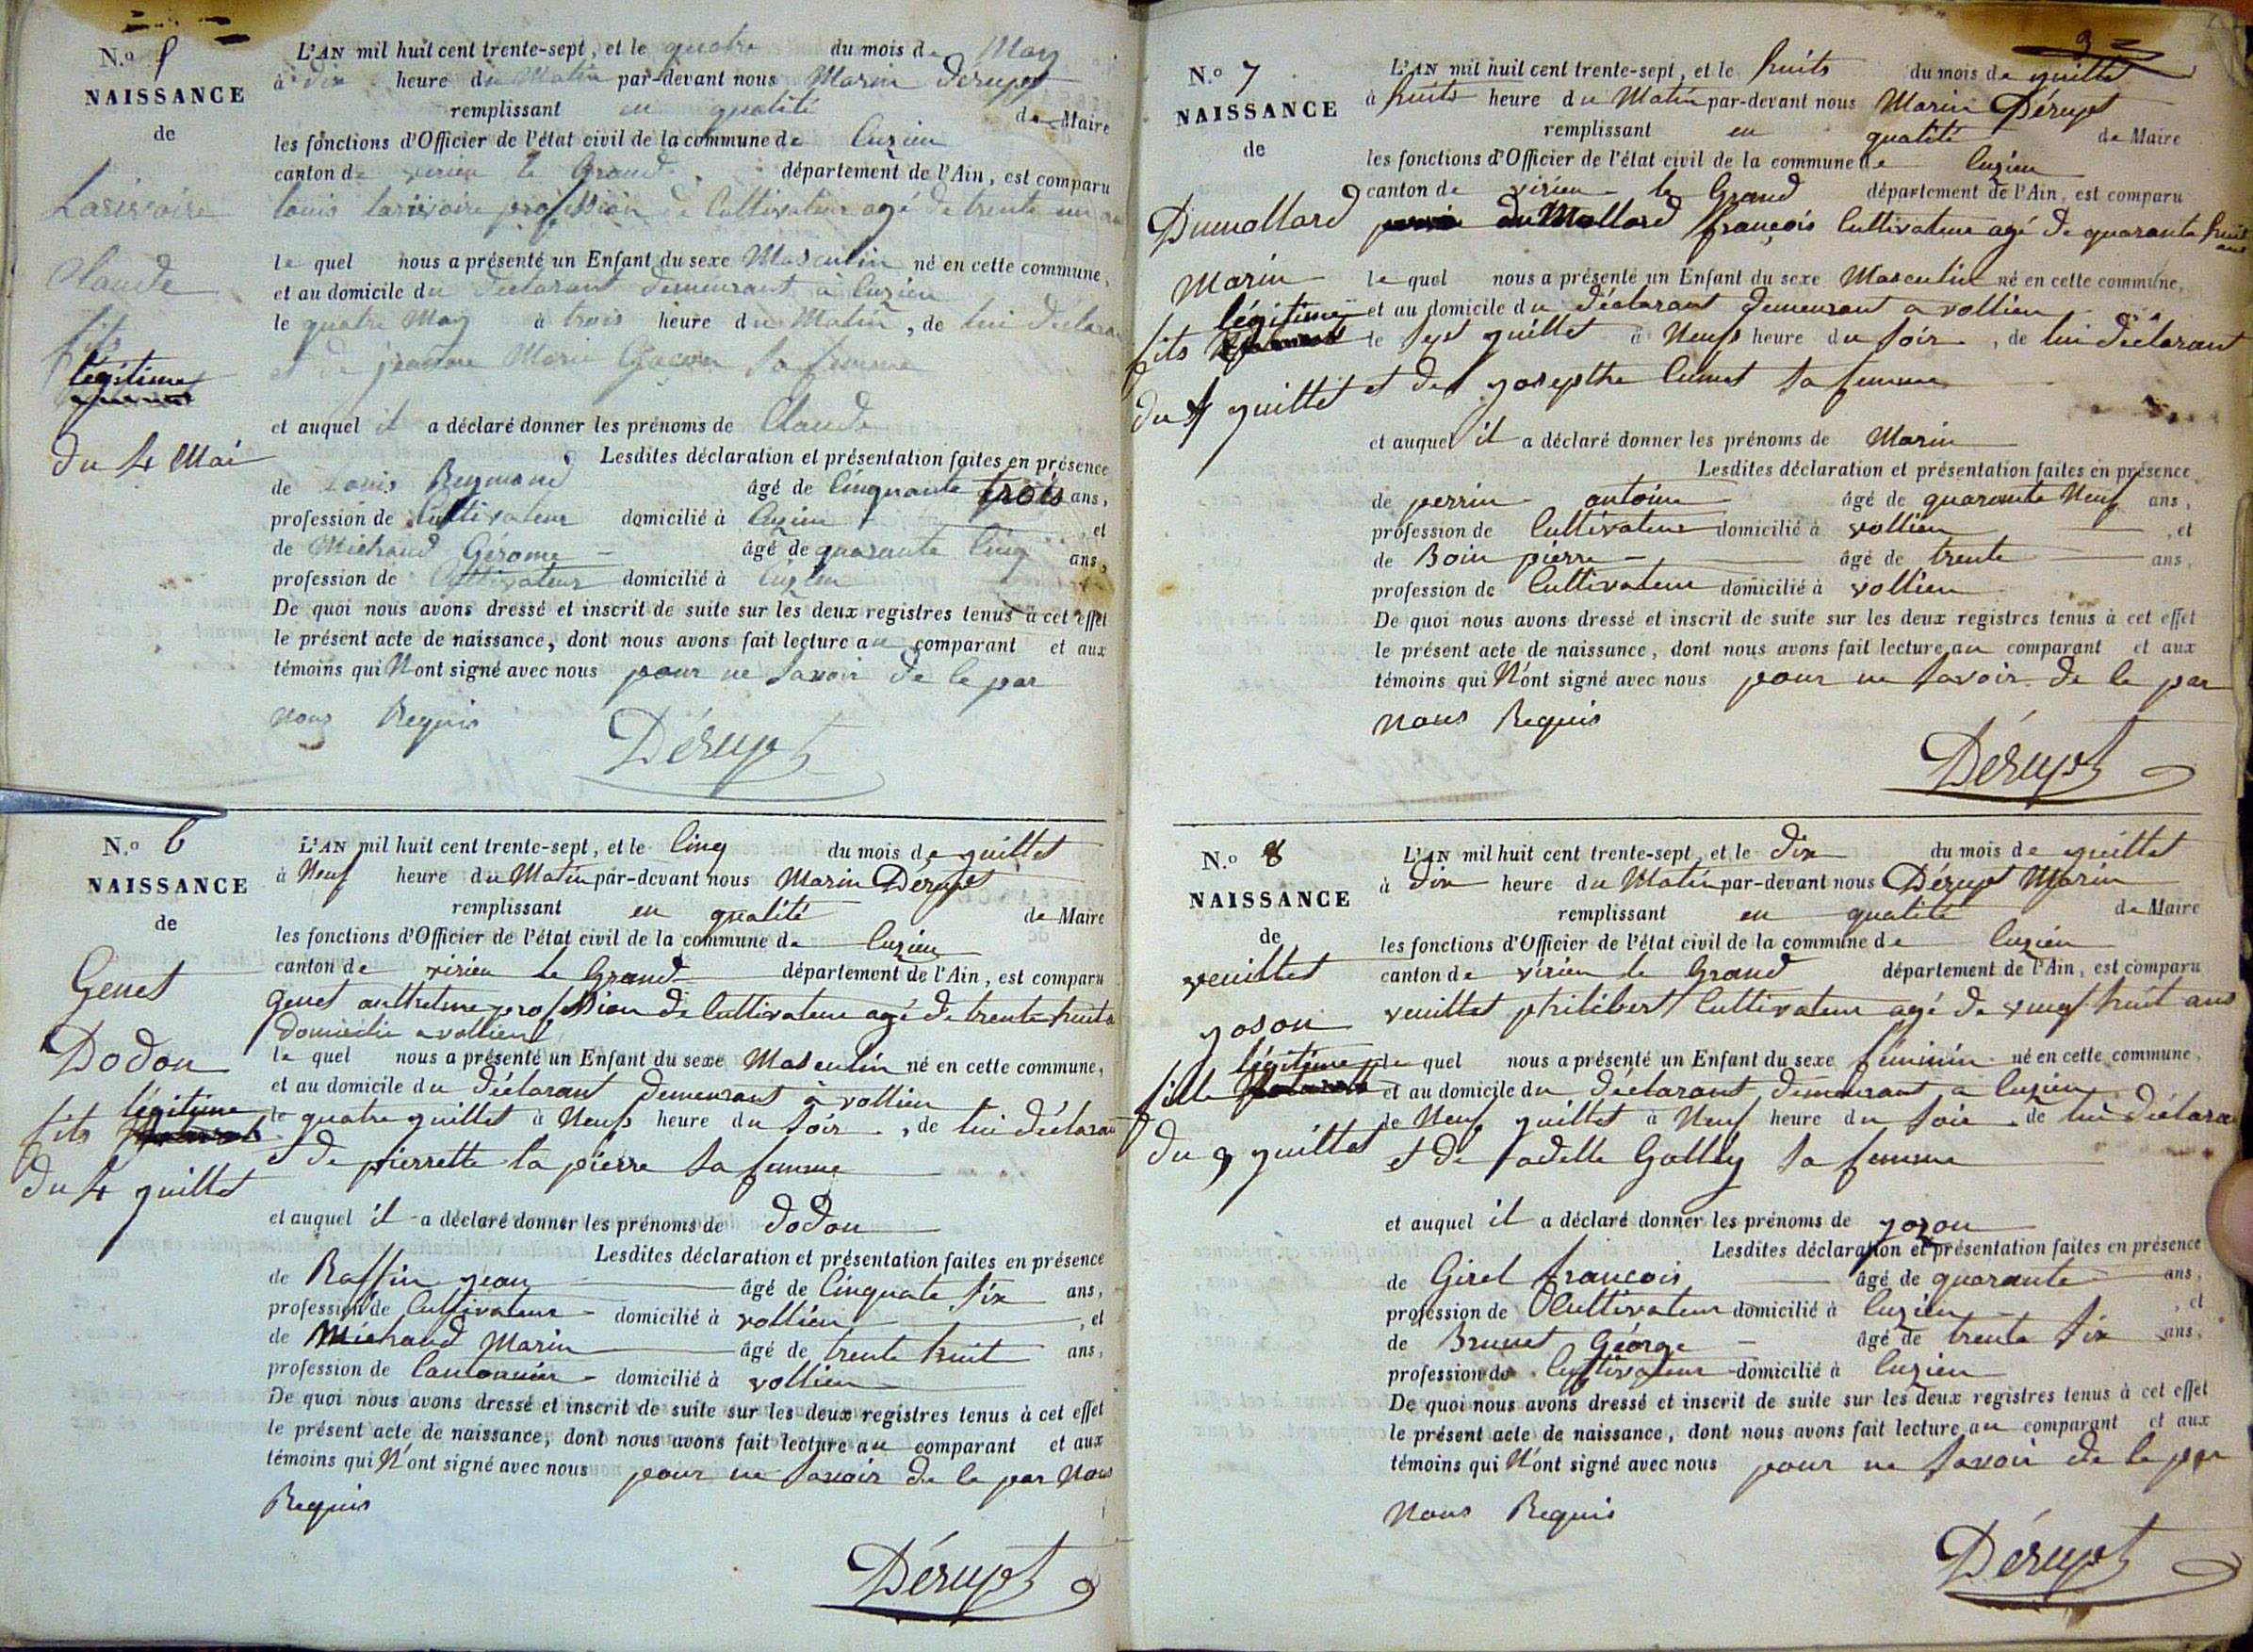 N.o 5
NAISSANCE
de
Larivoire
Claude
fils
légitime
du 4 Mai
L'AN mil huit cent trente-sept, et le quatre du mois de May
à dix heure du Matin par-devant nous Marin Dérupt
remplissant en qualité de Maire
les fonctions d'Officier de l'état civil de la commune de Cuzieu
canton de virieu le Grand département de l'Ain, est comparu
Louis Larivoire profession de Cultivateur agé de trente un
le quel nous a présenté un Enfant du sexe Masculin né en cette commune,
et au domicile du déclarant demeurant à Cuzieu
le quatre May à trois heure du Matin, de lui déclarant
et de jeanne Marie sa femme
et auquel il a déclaré donner les prénoms de Claude
Lesdites déclaration et présentation faites en présence
de Louis Reymond âgé de Cinquante trois ans,
profession de Cultivateur domicilié à Cuzieu, et
de Michaud Gérome âgé de quarante Cinq ans,
profession de Cultivateur domicilié à Cuzieu
De quoi nous avons dressé et inscrit de suite sur les deux registres tenus à cet effet
le présent acte de naissance, dont nous avons fait lecture au comparant et aux
témoins qui N'ont signé avec nous pour ne savoir de le par
nous Requis
Dérupt
N.o 6
NAISSANCE
de
Genet
Dodon
légitime
fils
du 4 juillet
L'AN mil huit cent trente-sept, et le Cinq du mois de juillet
à Neuf heure du Matin par-devant nous Marin Dérupt
remplissant en qualité de Maire
les fonctions d'Officier de l'état civil de la commune de Cuzieu
canton de virieu le Grand département de l'Ain, est comparu
Genet profession de Cultivateur agé de trente huit
domicilié a vollien
le quel nous a présenté un Enfant du sexe Masculin né en cette commune,
et au domicile du déclarant demeurant à vollien
le quatre juillet à Neufs heure du soir, de lui déclarant
et de pierrette la pierre sa femme
et auquel il a déclaré donner les prénoms de dodon
Lesdites déclaration et présentation faites en présence
de Raffin jean âgé de Cinquate six ans,
profession de Cultivateur domicilié à vollien, et
de Michaud Marin âgé de trente huit ans,
profession de Cantonnier domicilié à vollien
De quoi nous avons dressé et inscrit de suite sur les deux registres tenus à cet effet
le présent acte de naissance, dont nous avons fait lecture au comparant et aux
témoins qui N'ont signé avec nous pour ne savoir de le par Nous
Requis
Dérupt
N.o 7
NAISSANCE
de
Dumollard
Marin
légitime
fils
du 7 juillet
L'AN mil huit cent trente-sept, et le huits du mois de juillet
à huits heure du Matin par-devant nous Marin Dérupt
remplissant en qualité de Maire
les fonctions d'Officier de l'état civil de la commune de Cuzieu
canton de virieu le Grand département de l'Ain, est comparu
du Mollard françois Cultivateur agé de quarante huit
ans
le quel nous a présenté un Enfant du sexe Masculin né en cette commune,
et au domicile du déclarant demeurant a vollien
le sept juillet à Neufs heure du soir, de lui déclarant
et de josepthe Cumet sa femme
et auquel il a déclaré donner les prénoms de Marin
Lesdites déclaration et présentation faites en présence
de perrin antoine âgé de quarante Neuf ans,
profession de Cultivateur domicilié à vollien, et
de Boin pierre âgé de trente ans,
profession de Cultivateur domicilié à vollien
De quoi nous avons dressé et inscrit de suite sur les deux registres tenus à cet effet
le présent acte de naissance, dont nous avons fait lecture au comparant et aux
témoins qui N'ont signé avec nous pour ne savoir de le par
nous Requis
Dérupt
N.o 8
NAISSANCE
de
veuillet
joson
légitime
fille
du 9 juillet
L'AN mil huit cent trente-sept, et le dix du mois de juillet
à dix heure du Matin par-devant nous Dérupt Marin
remplissant en qualité de Maire
les fonctions d'Officier de l'état civil de la commune de Cuzieu
canton de virieu le Grand département de l'Ain, est comparu
veuillet philibert Cultivateur agé de vingt huit ans
le quel nous a présenté un Enfant du sexe féminin né en cette commune,
et au domicile du déclarant demeurant a Cuzieu
le Neuf juillet à Neuf heure du soir, de lui déclarant
et de adelle Gallay sa femme
et auquel il a déclaré donner les prénoms de jozon
Lesdites déclaration et présentation faites en présence
de Girel francois âgé de quarante ans,
profession de Cultivateur domicilié à Cuzieu, et
de Brunet Géorge âgé de trente six ans,
profession de Cultivateur domicilié à Cuzieu
De quoi nous avons dressé et inscrit de suite sur les deux registres tenus à cet effet
le présent acte de naissance, dont nous avons fait lecture au comparant et aux
témoins qui N'ont signé avec nous pour ne savoir de le par
nous Requis
Dérupt